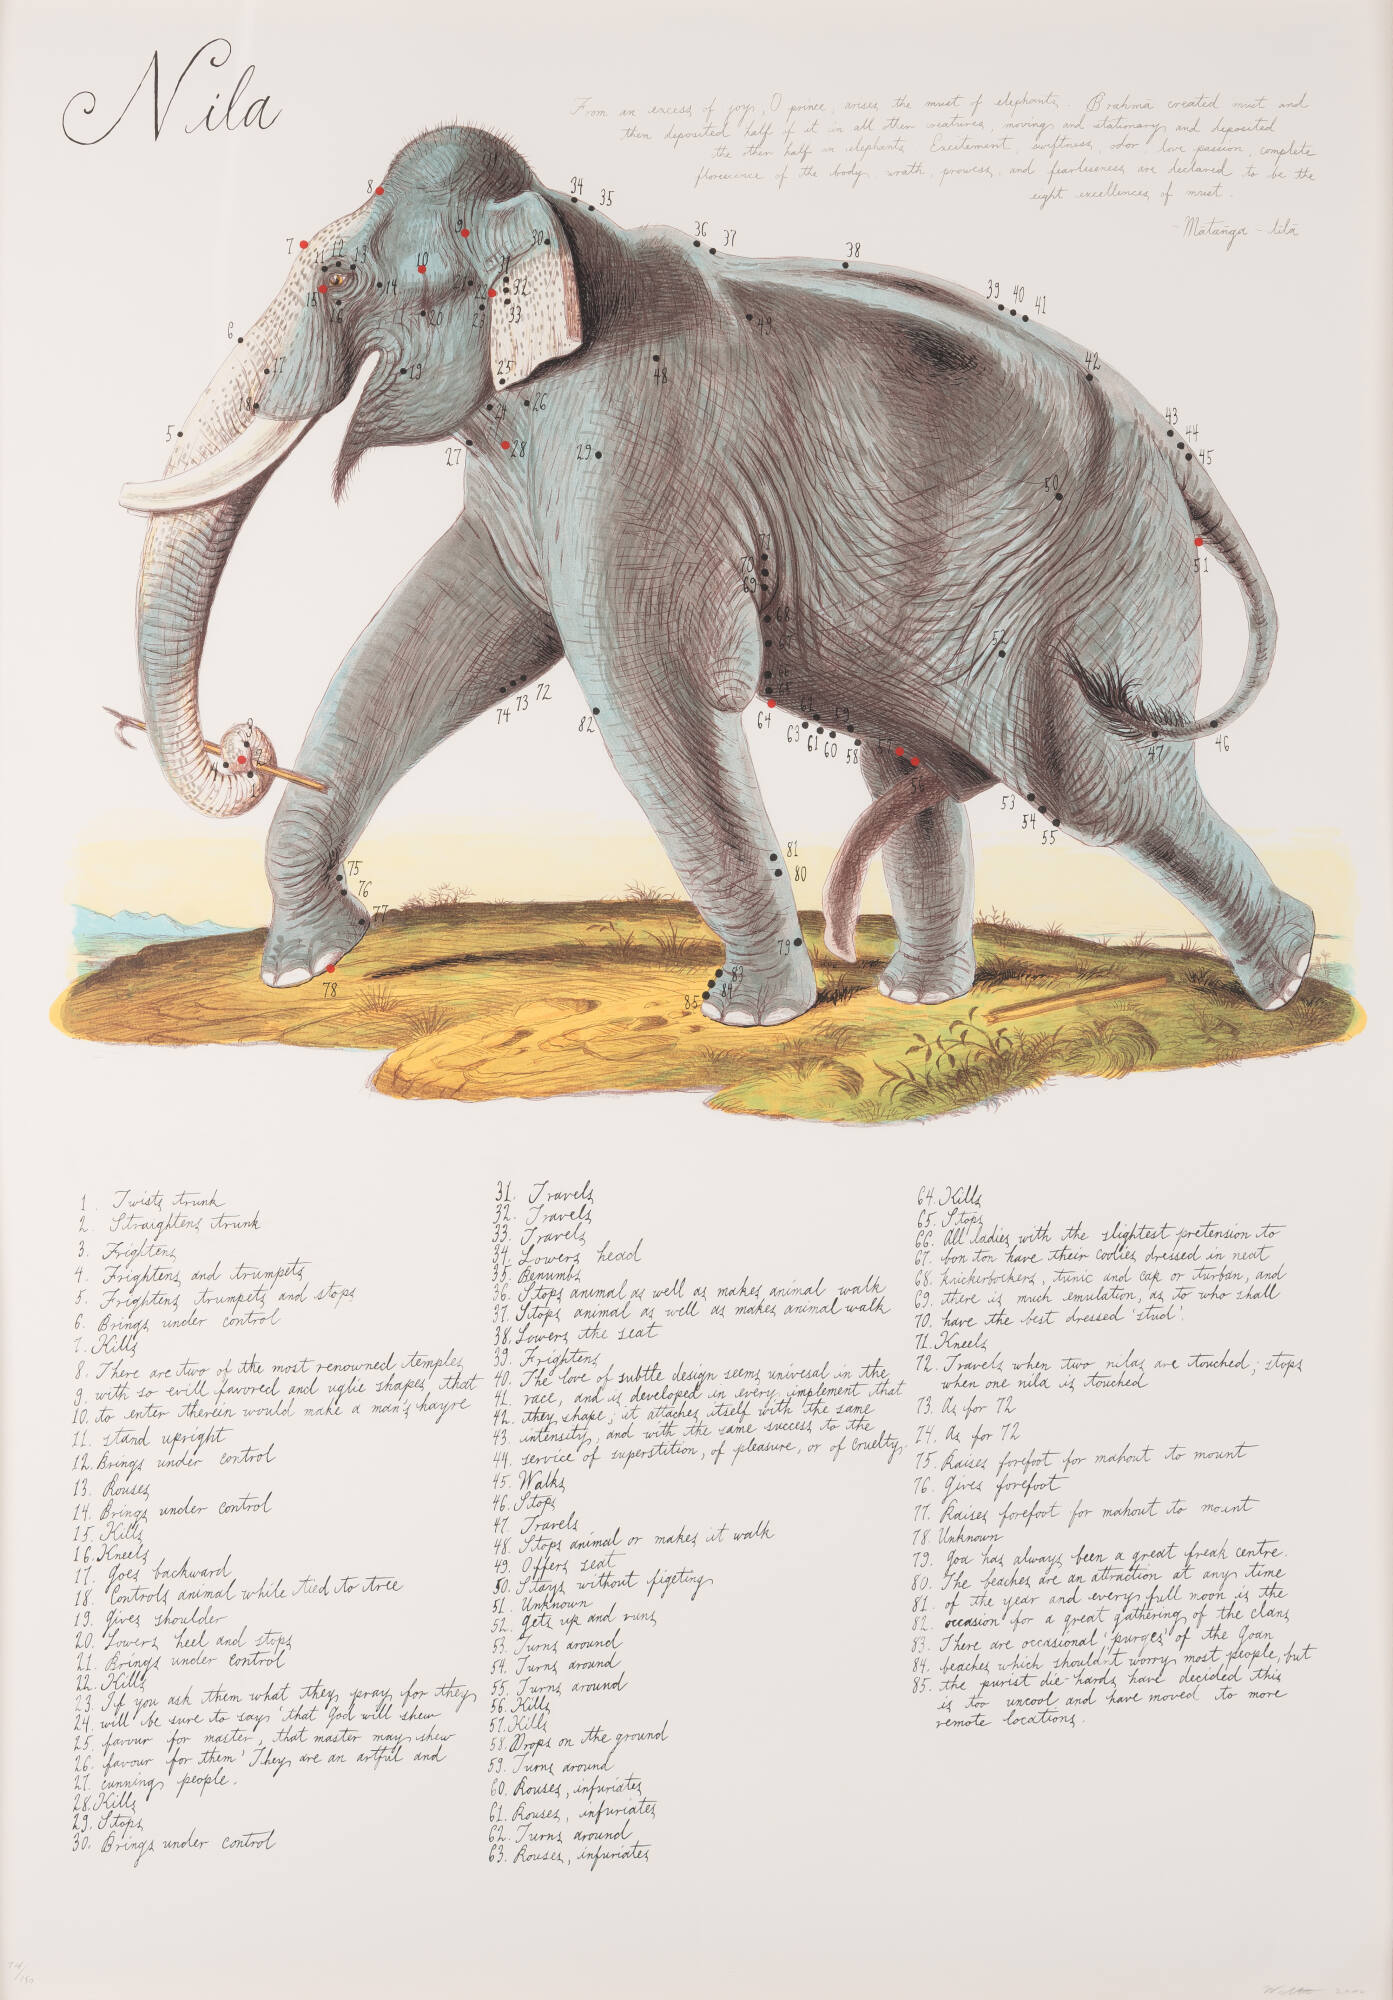 Nila
From an excess of joy, O prince, arises the must of elephants. Brahmā created must and
then deposited half of it in all other creatures, moving and stationary and deposited
the other half in elephants. Excitement, swiftness, odor love passion, complete
florescence of the body, wrath, prowess, and fearlessness are declared to be the
eight excellences of must.
- Mātaṅga - līlā
1. Twists trunk
2. Straightens trunk
3. Frightens
4. Frightens and trumpets
5. Frightens trumpets and stops
6. Brings under control
7. Kills
8. There are two of the most renowned temples
9. with so evill favored and uglie shapes, that
10. to enter therein would make a man's hayre
11. stand upright
12. Brings under control
13. Rouses
14. Brings under control
15. Kills
16. Kneels
17. Goes backward
18. Controls animal while tied to tree
19. Gives shoulder
20. Lowers heel and stops
21. Brings under control
22. Kills
23. If you ask them what they pray for they
24. will be sure to say 'that God will shew
25. favour for master, that master may shew
26. favour for them' They are an artful and
27. cunning people.
28. Kills
29. Stops
30. Brings under control
31. Travels
32. Travels
33. Travels
34. Lowers head
35. Benumbs
36. Stops animal as well as makes animal walk
37. Stops animal as well as makes animal walk
38. Lowers the seat
39. Frightens
40. The love of subtle design seems univesal in the
41. race, and is developed in every implement that
42. they shape; it attaches itself with the same
43. intensity, and with the same success to the
44. service of superstition, of pleasure, or of cruelty.
45. Walks
46. Stops
47. Travels
48. Stops animal or makes it walk
49. Offers seat
50. Stays without figeting
51. Unknown
52. Gets up and runs
53. Turns around
54. Turns around
55. Turns around
56. Kills
57. Kills
58. Drops on the ground
59. Turns around
60. Rouses, infuriates
61. Rouses, infuriates
62. Turns around
63. Rouses, infuriates
64. Kills
65. Stops
66. All ladies with the slightest pretension to
67. bon ton have their coolies dressed in neat
68. knickerbockers, tunic and cap or turban, and
69. there is much emulation, as to who shall
70. have the best dressed 'stud'.
71. Kneels
72. Travels when two nilas are touched; stops
when one nila is touched
73. As for 72
74. As for 72
75. Raises forefoot for mahout to mount
76. Gives forefoot
77. Raises forefoot for mahout to mount
78. Unknown
79. Goa has always been a great freak centre.
80. The beaches are an attraction at any time
81. of the year and every full moon is the
82. occasion for a great gathering of the clans
83. There are occasional 'purges' of the Goan
84. beaches which shouldn't worry most people, but
85. the purist die-hards have decided this
is too uncool and have moved to more
remote locations.